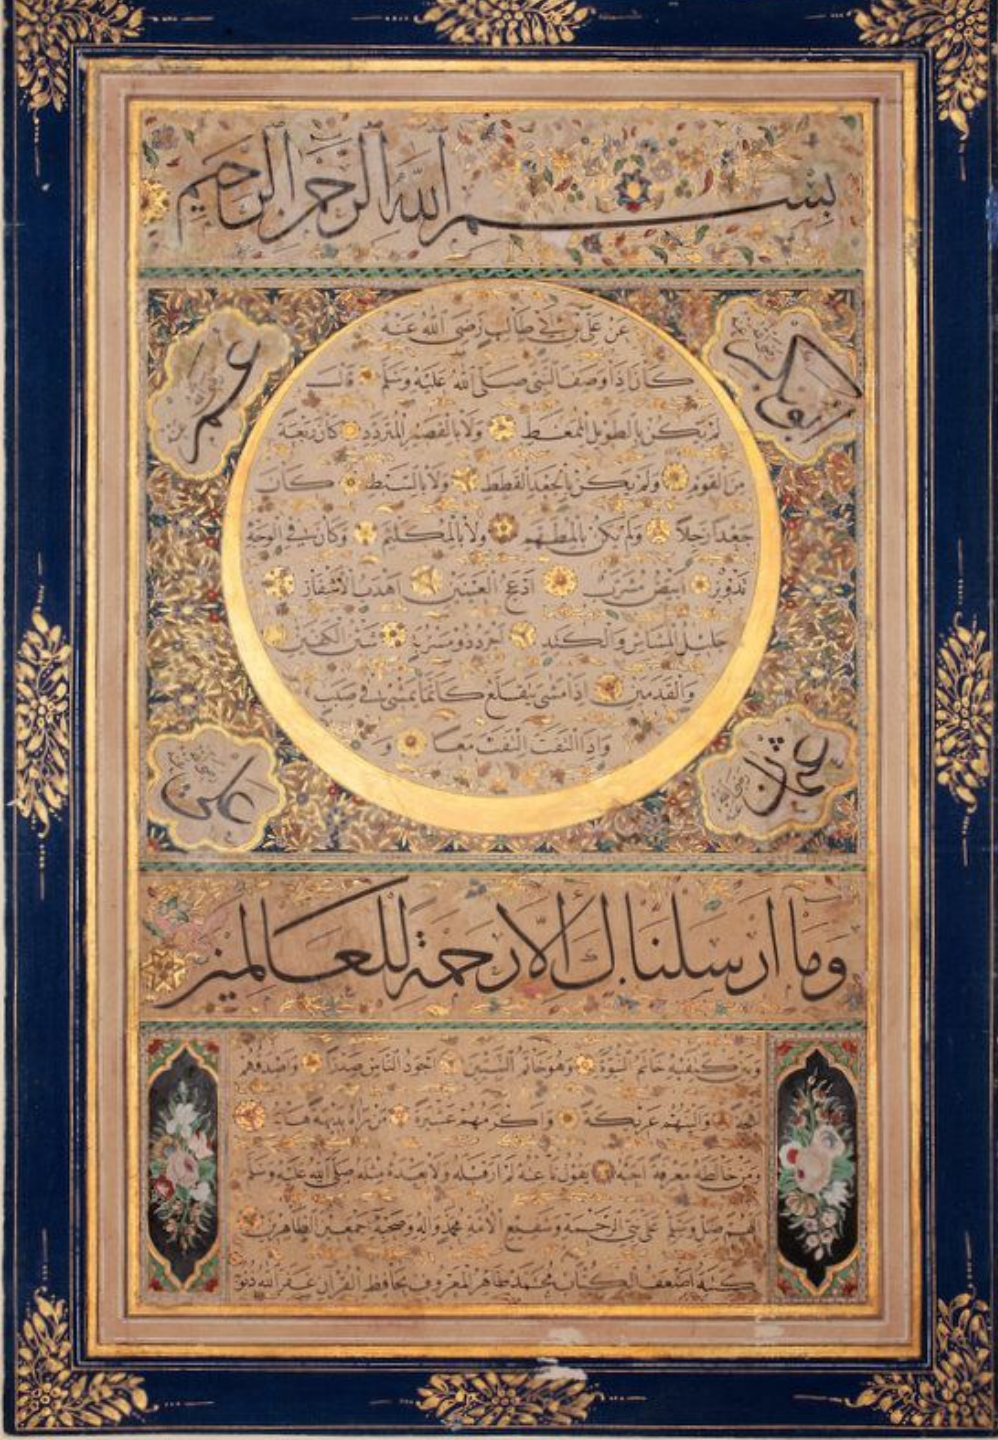 بسم الله الرحمن الرحيم
ابو بكر رضي الله عنه
عمر رضي الله عنه
عن علي بن ابي طالب رضي الله عنه
كان اذا وصف النبي صلى الله عليه وسلم قال
لم يكن بالطويل الممغط ولا بالقصير المتردد كان ربعة
من القوم ولم يكن بالجعد القطط ولا بالسبط كان
جعدا رجلا ولم يكن بالمطهم ولا بالمكلثم وكان في الوجه
تدوير ابيض مشرب ادعج العينين اهدب الاشفار
جليل المشاش والكتد اجرد ذو مسربة شثن الكفين
والقدمين اذا مشى يتقلع كانما يمشي في صبب
واذا التفت التفت معا و
عثمان رضي الله عنه
علي رضي الله عنه
وما ارسلناك الا رحمة للعالمين
وبين كتفيه خاتم النبوة وهو خاتم النبيين اجود الناس صدرا واصدقهم
لهجة والينهم عريكة واكرمهم عشيرة من راه بديهة هابه
ومن خالطه معرفة احبه يقول ناعته لم ار قبله ولا بعده مثله صلى الله عليه وسلم
اللهم صل وسلم على نبي الرحمة وشفيع الامة محمد واله وصحبه اجمعين الطاهرين
كتبه اضعف الكتاب محمد طاهر المعروف بحافظ القران غفر الله ذنوبه